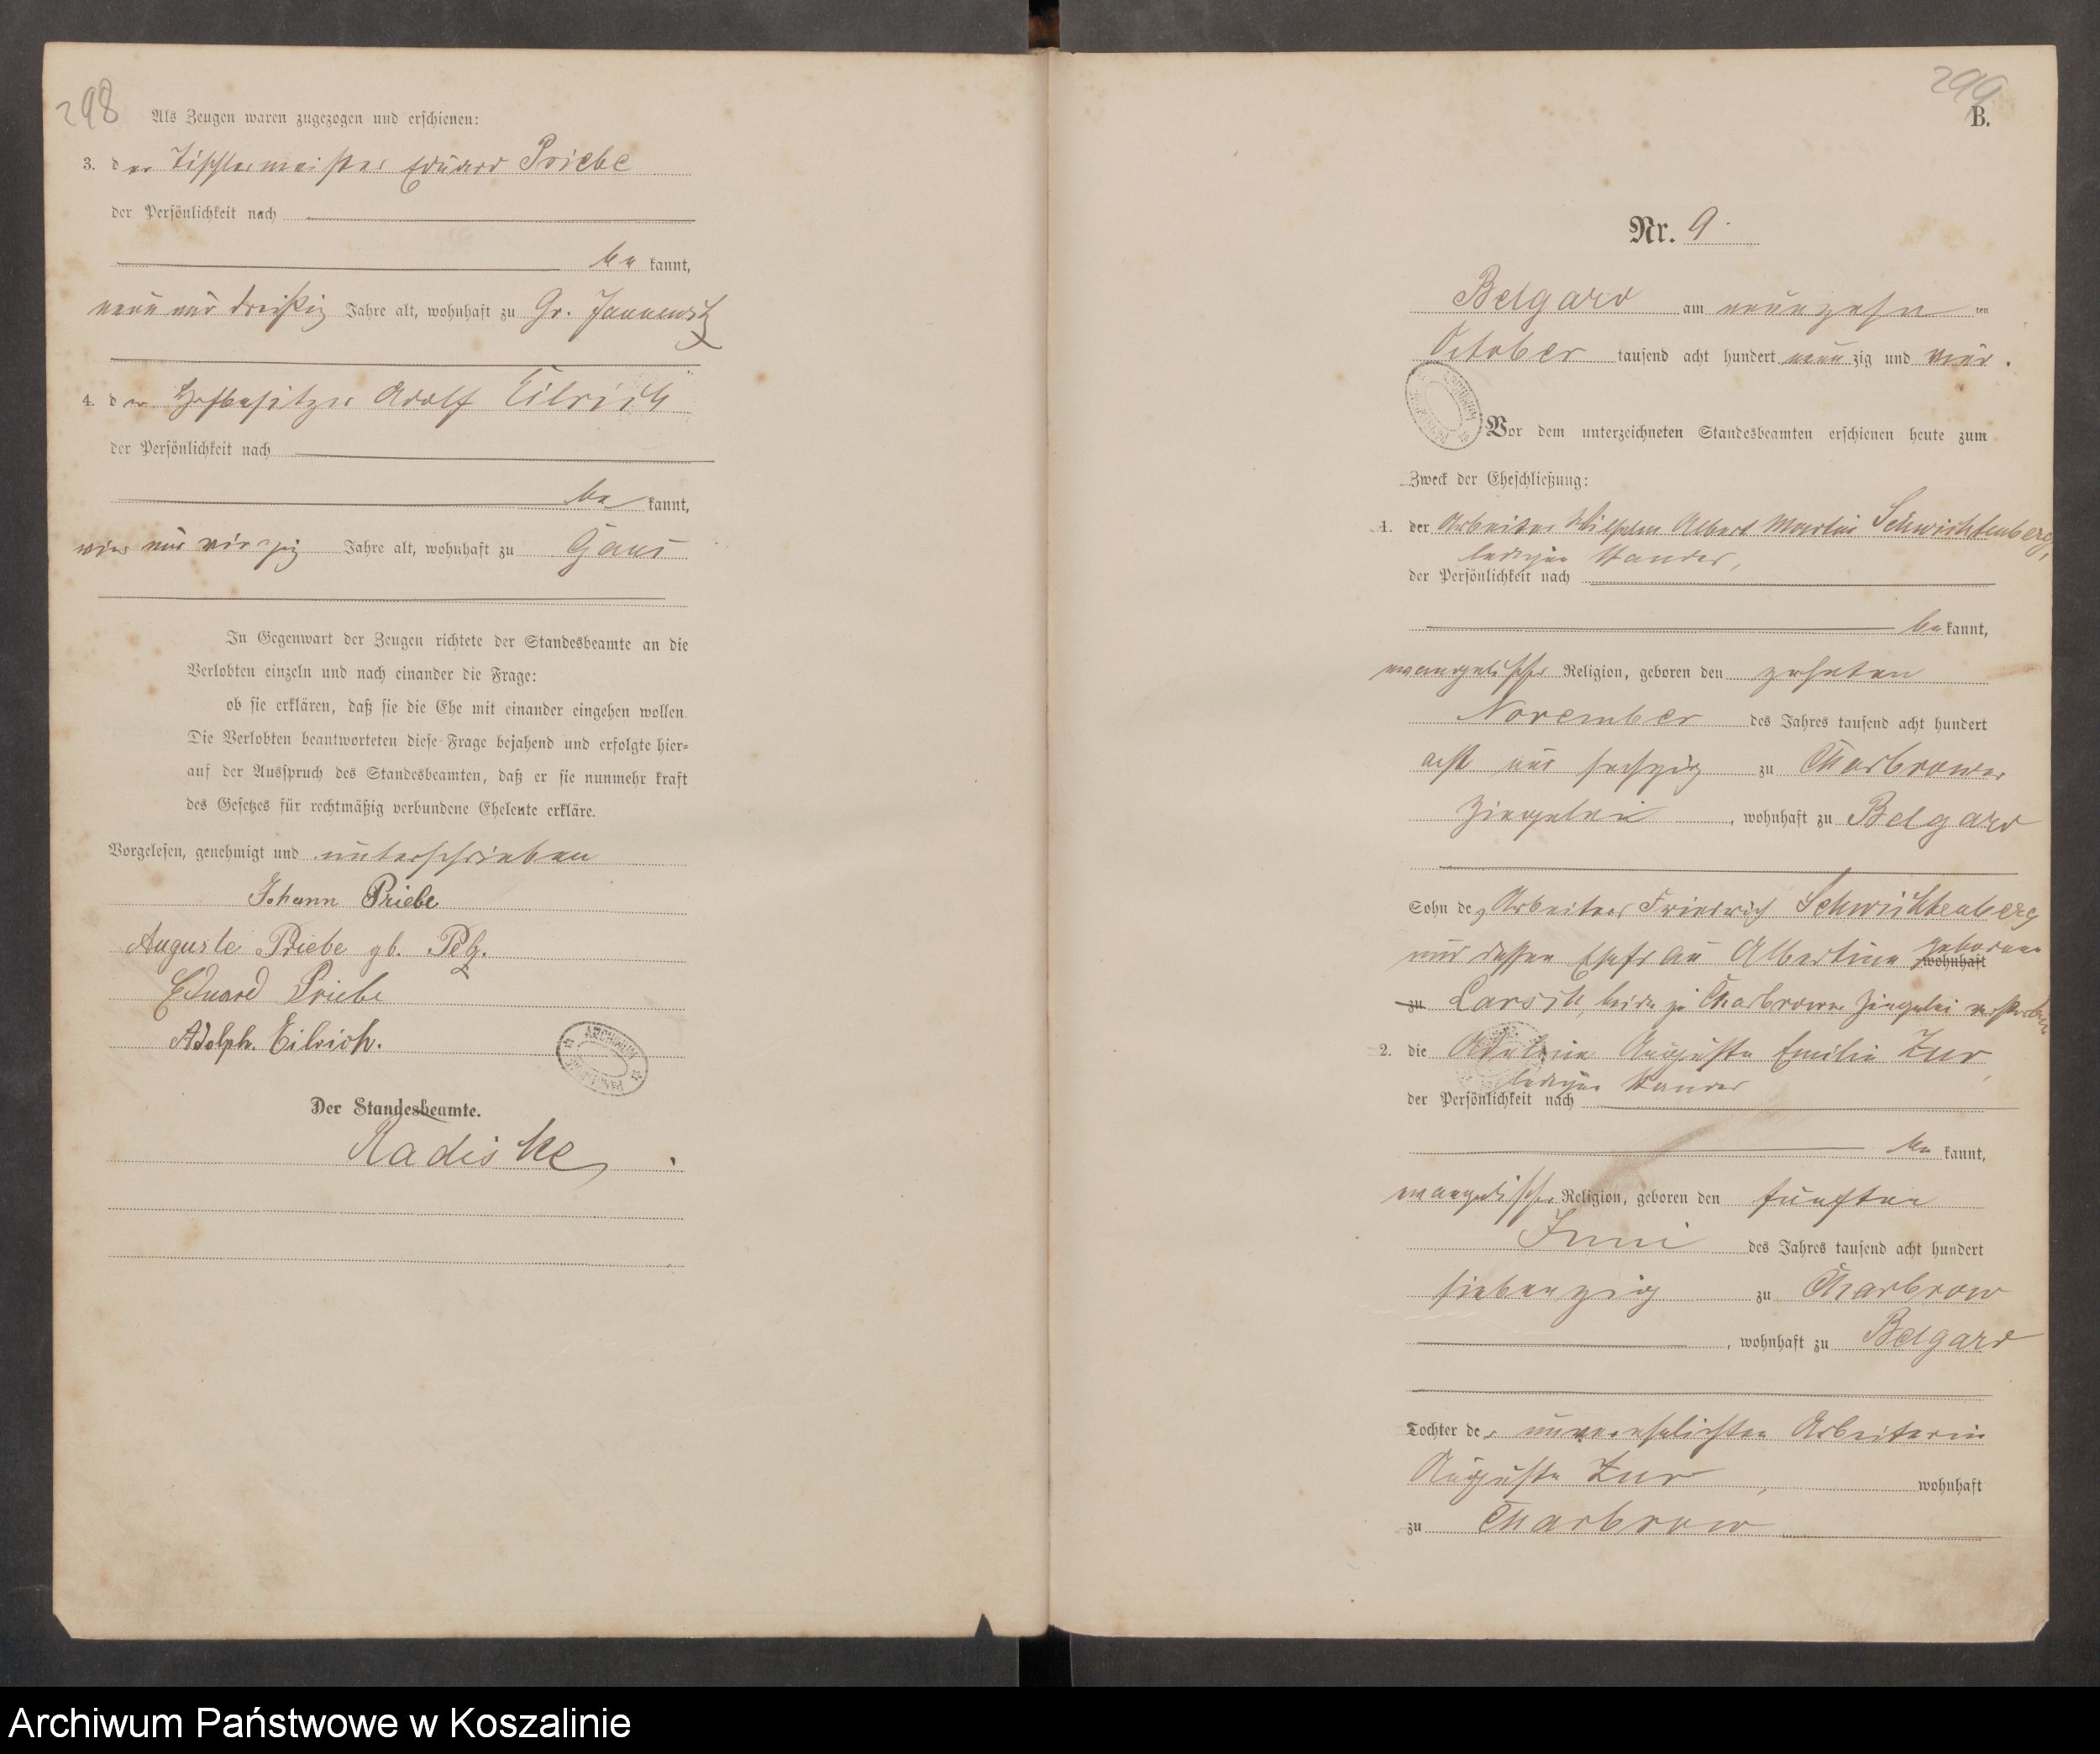 298
Als Zeugen waren zugezogen und erschienen:
3. der Tischlermeister Eduard Priebe
der Persönlichkeit nach
be kannt,
neun und dreißig Jahre alt, wohnhaft zu Gr. Jannewitz
4. der Hofbesitzer Adolf Eilrich
der Persönlichkeit nach
be kannt,
vier und vierzig Jahre alt, wohnhaft zu Gans
In Gegenwart der Zeugen richtete der Standesbeamte an die
Verlobten einzeln und nach einander die Frage:
ob sie erklären, daß sie die Ehe mit einander eingehen wollen.
Die Verlobten beantworteten diese Frage bejahend und erfolgte hier-
auf der Ausspruch des Standesbeamten, daß er sie nunmehr kraft
des Gesetzes für rechtmäßig verbundene Eheleute erkläre.
Vorgelesen, genehmigt und unterschrieben
Johann Priebe
Auguste Priebe gb. Pelz.
Eduard Priebe
Adolph. Eilrich.
ARCHIWUM
Der Standesbeamte.
Radiske
299
B.
Nr. 9.
Belgard am neunzehn ten
October tausend acht hundert neun zig und vier.
ARCHIWUM
Vor dem unterzeichneten Standesbeamten erschienen heute zum
Zweck der Eheschließung:
1. der Arbeiter Wilhelm Albert Martin Schwichtenberg,
ledigen Standes,
der Persönlichkeit nach
be kannt,
evangelischer Religion, geboren den zehnten
November des Jahres tausend acht hundert
acht und sechzig zu Charbrower
Ziegelei, wohnhaft zu Belgard
Sohn des Arbeiters Friedrich Schwichtenberg
und dessen Ehefrau Albertine geborene
wohnhaft
zu Larsch, beide zu Charbrower Ziegelei verstorben
2. die Auguste Emilie Zur,
ledigen Standes
der Persönlichkeit nach
be kannt,
evangelischer Religion, geboren den fünften
Juni des Jahres tausend acht hundert
siebenzig zu Charbrow
, wohnhaft zu Belgard
Tochter der unverehelichten Arbeiterin
Auguste Zur, wohnhaft
zu Charbrow
Archiwum Państwowe w Koszalinie